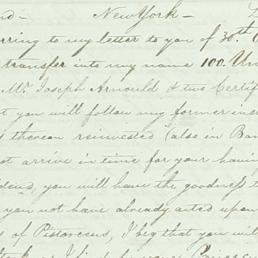 New York -
rring to my letter to you of 30th
transfer into my name 100. Uni
Mr. Joseph Arnould & two Certif
t you will follow my former ins
s thereon reinvested (also in Ban
not arrive in time for your havin
idend, you will have the goodness t
you not have already acted upon
s of Pistorcess, I beg that you wil